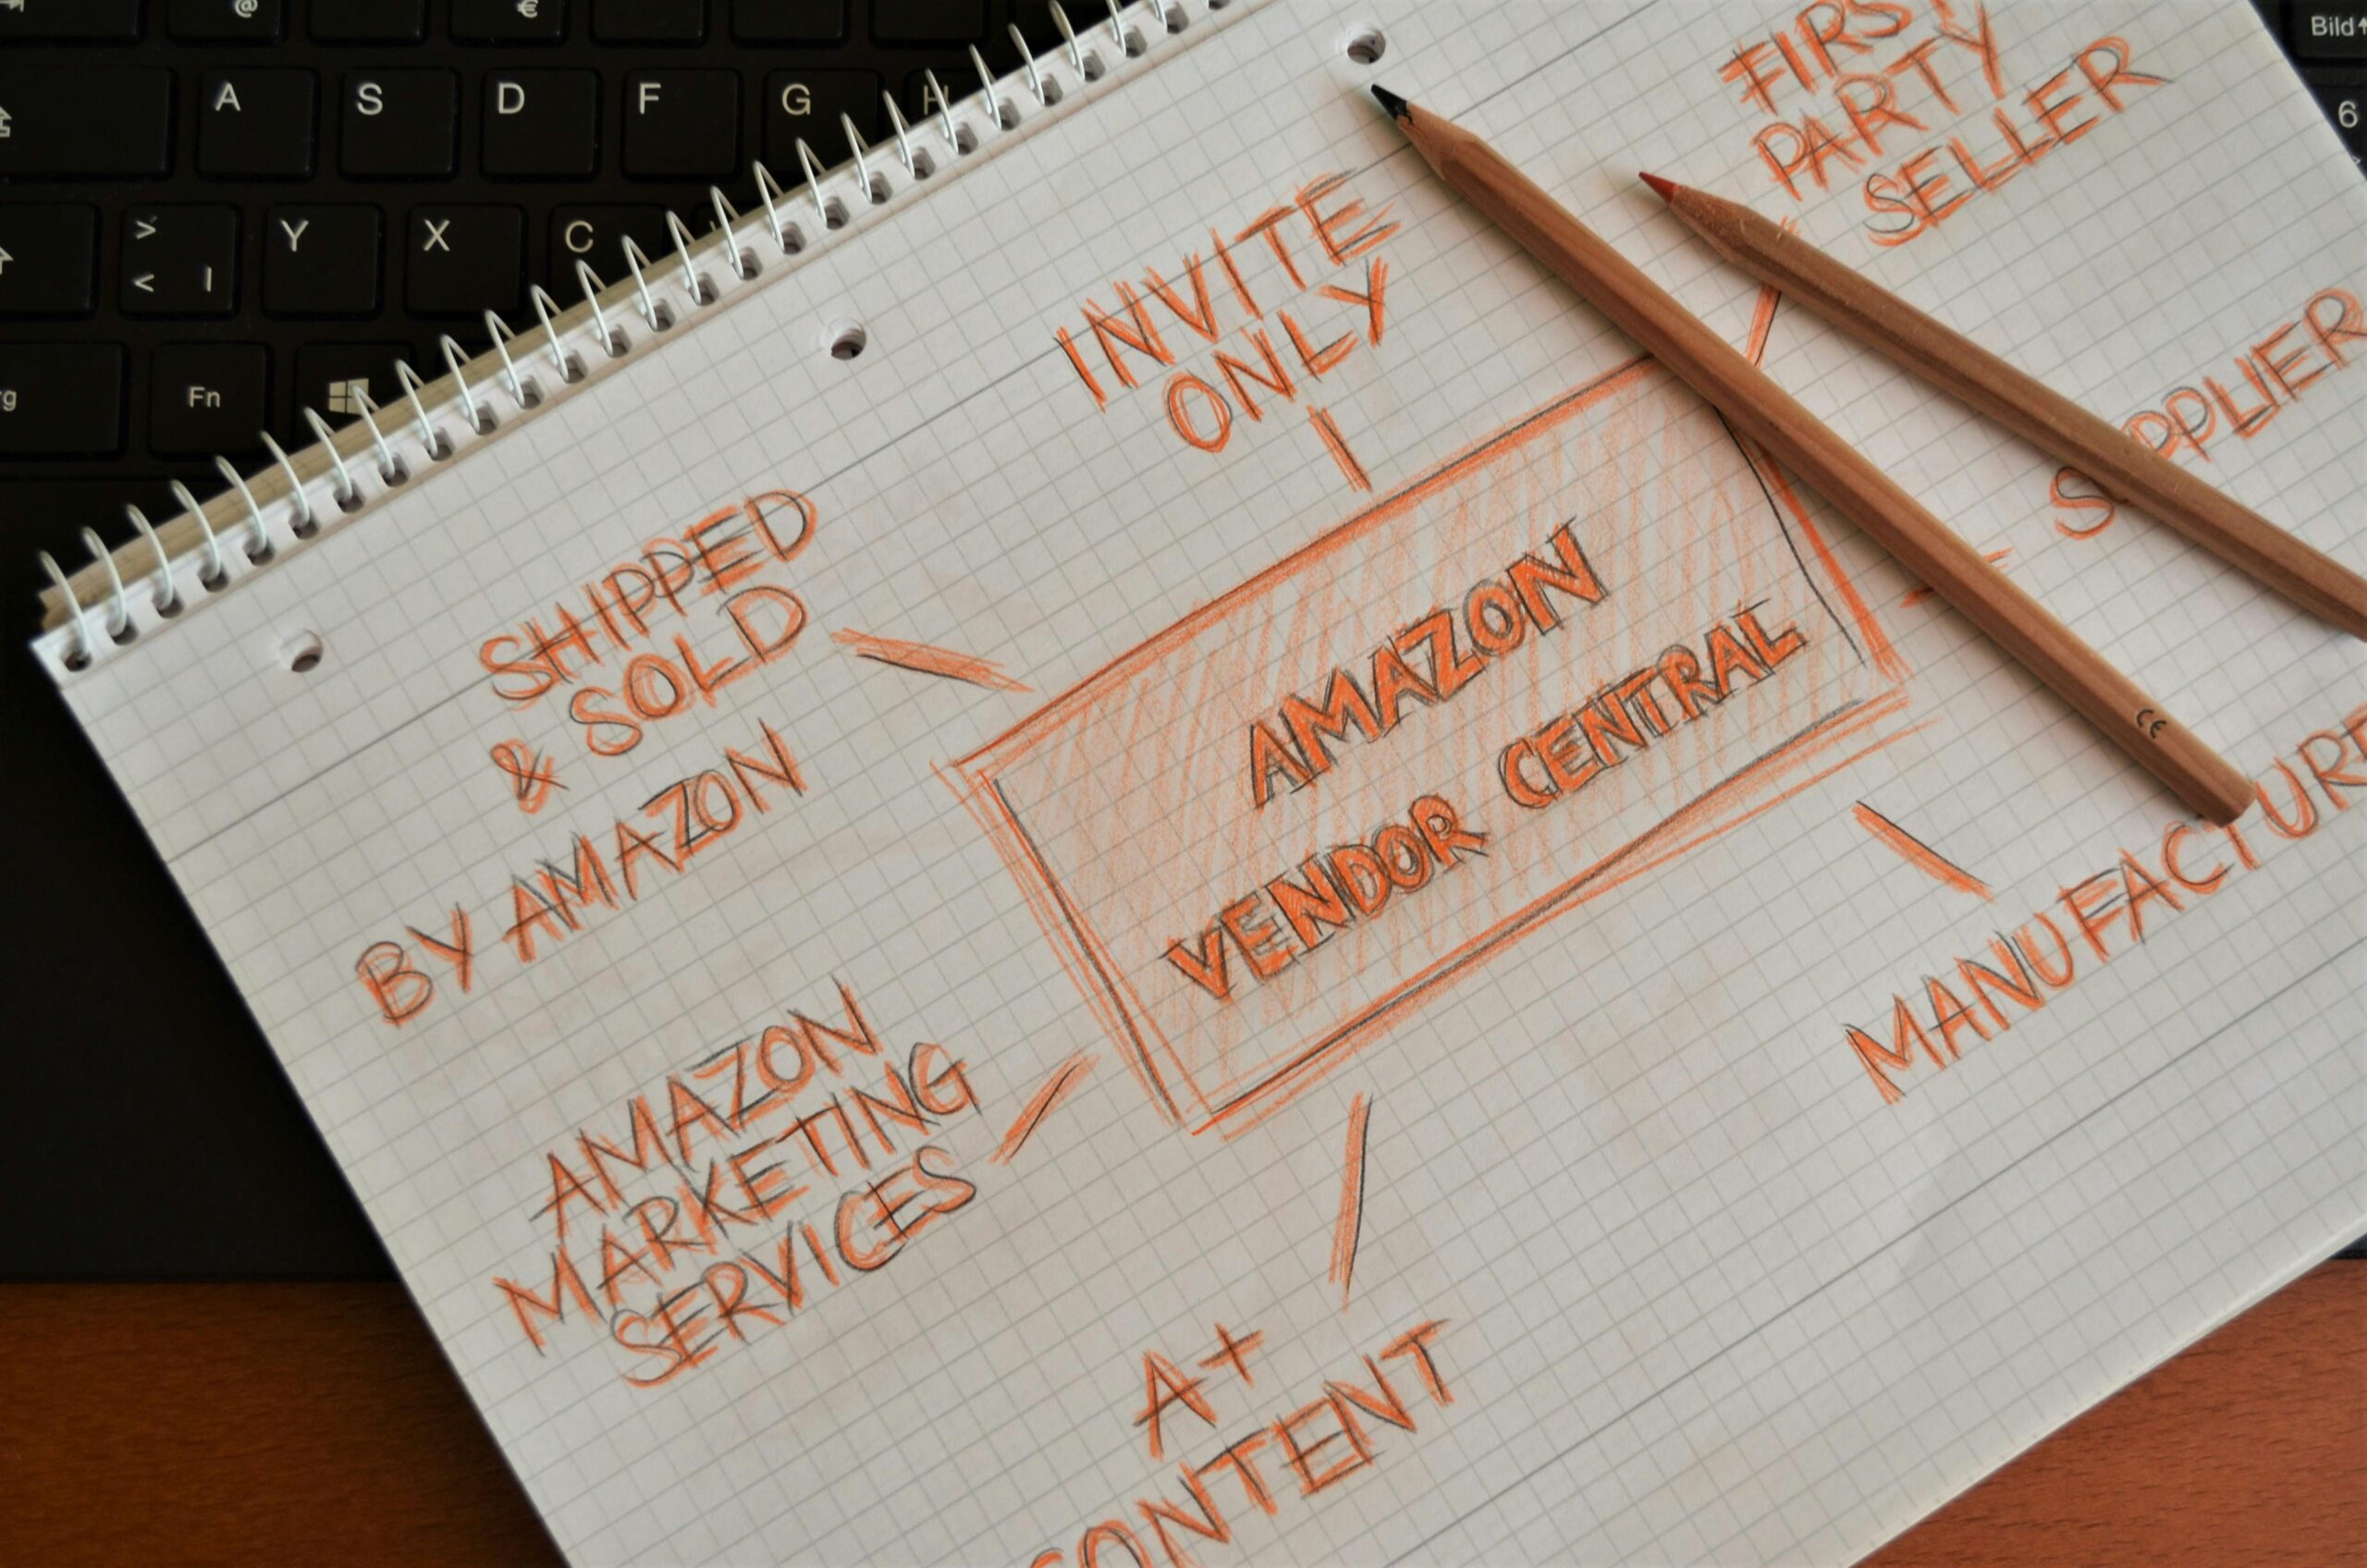 @
€
Bild
A
S
D
F
G
H
6
>
<
|
Y
X
C
rg
Fn
FIRST
PARTY
SELLER
INVITE
ONLY
SUPPLIER
SHIPPED
& SOLD
BY AMAZON
AMAZON
VENDOR CENTRAL
CE
MANUFACTURE
AMAZON
MARKETING
SERVICES
A+
CONTENT